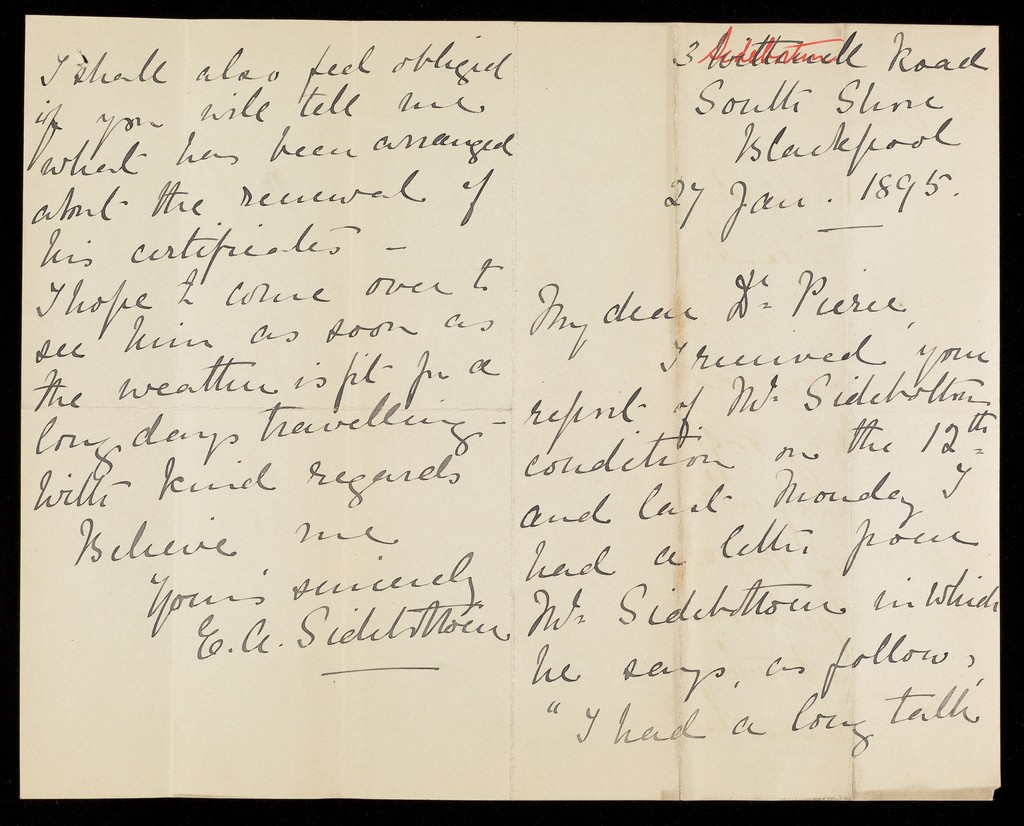 3 Road
South Shore
Blackpool
27 Jan. 1895.
My dear Dr. Pierce,
I received your
report of Mr. Sidebottoms
condition on the 12th
and last Monday I
had a letter from
Mr. Sidebottom in which
he says, as follows,
"I had a long talk
I shall also feel obliged
if you will tell me
what has been arranged
about the renewal of
his certificates -
I hope to come over to
see him as soon as
the weather is fit for a
long days travelling -
With kind regards
Believe me
Yours sincerely
E. A. Sidebottom